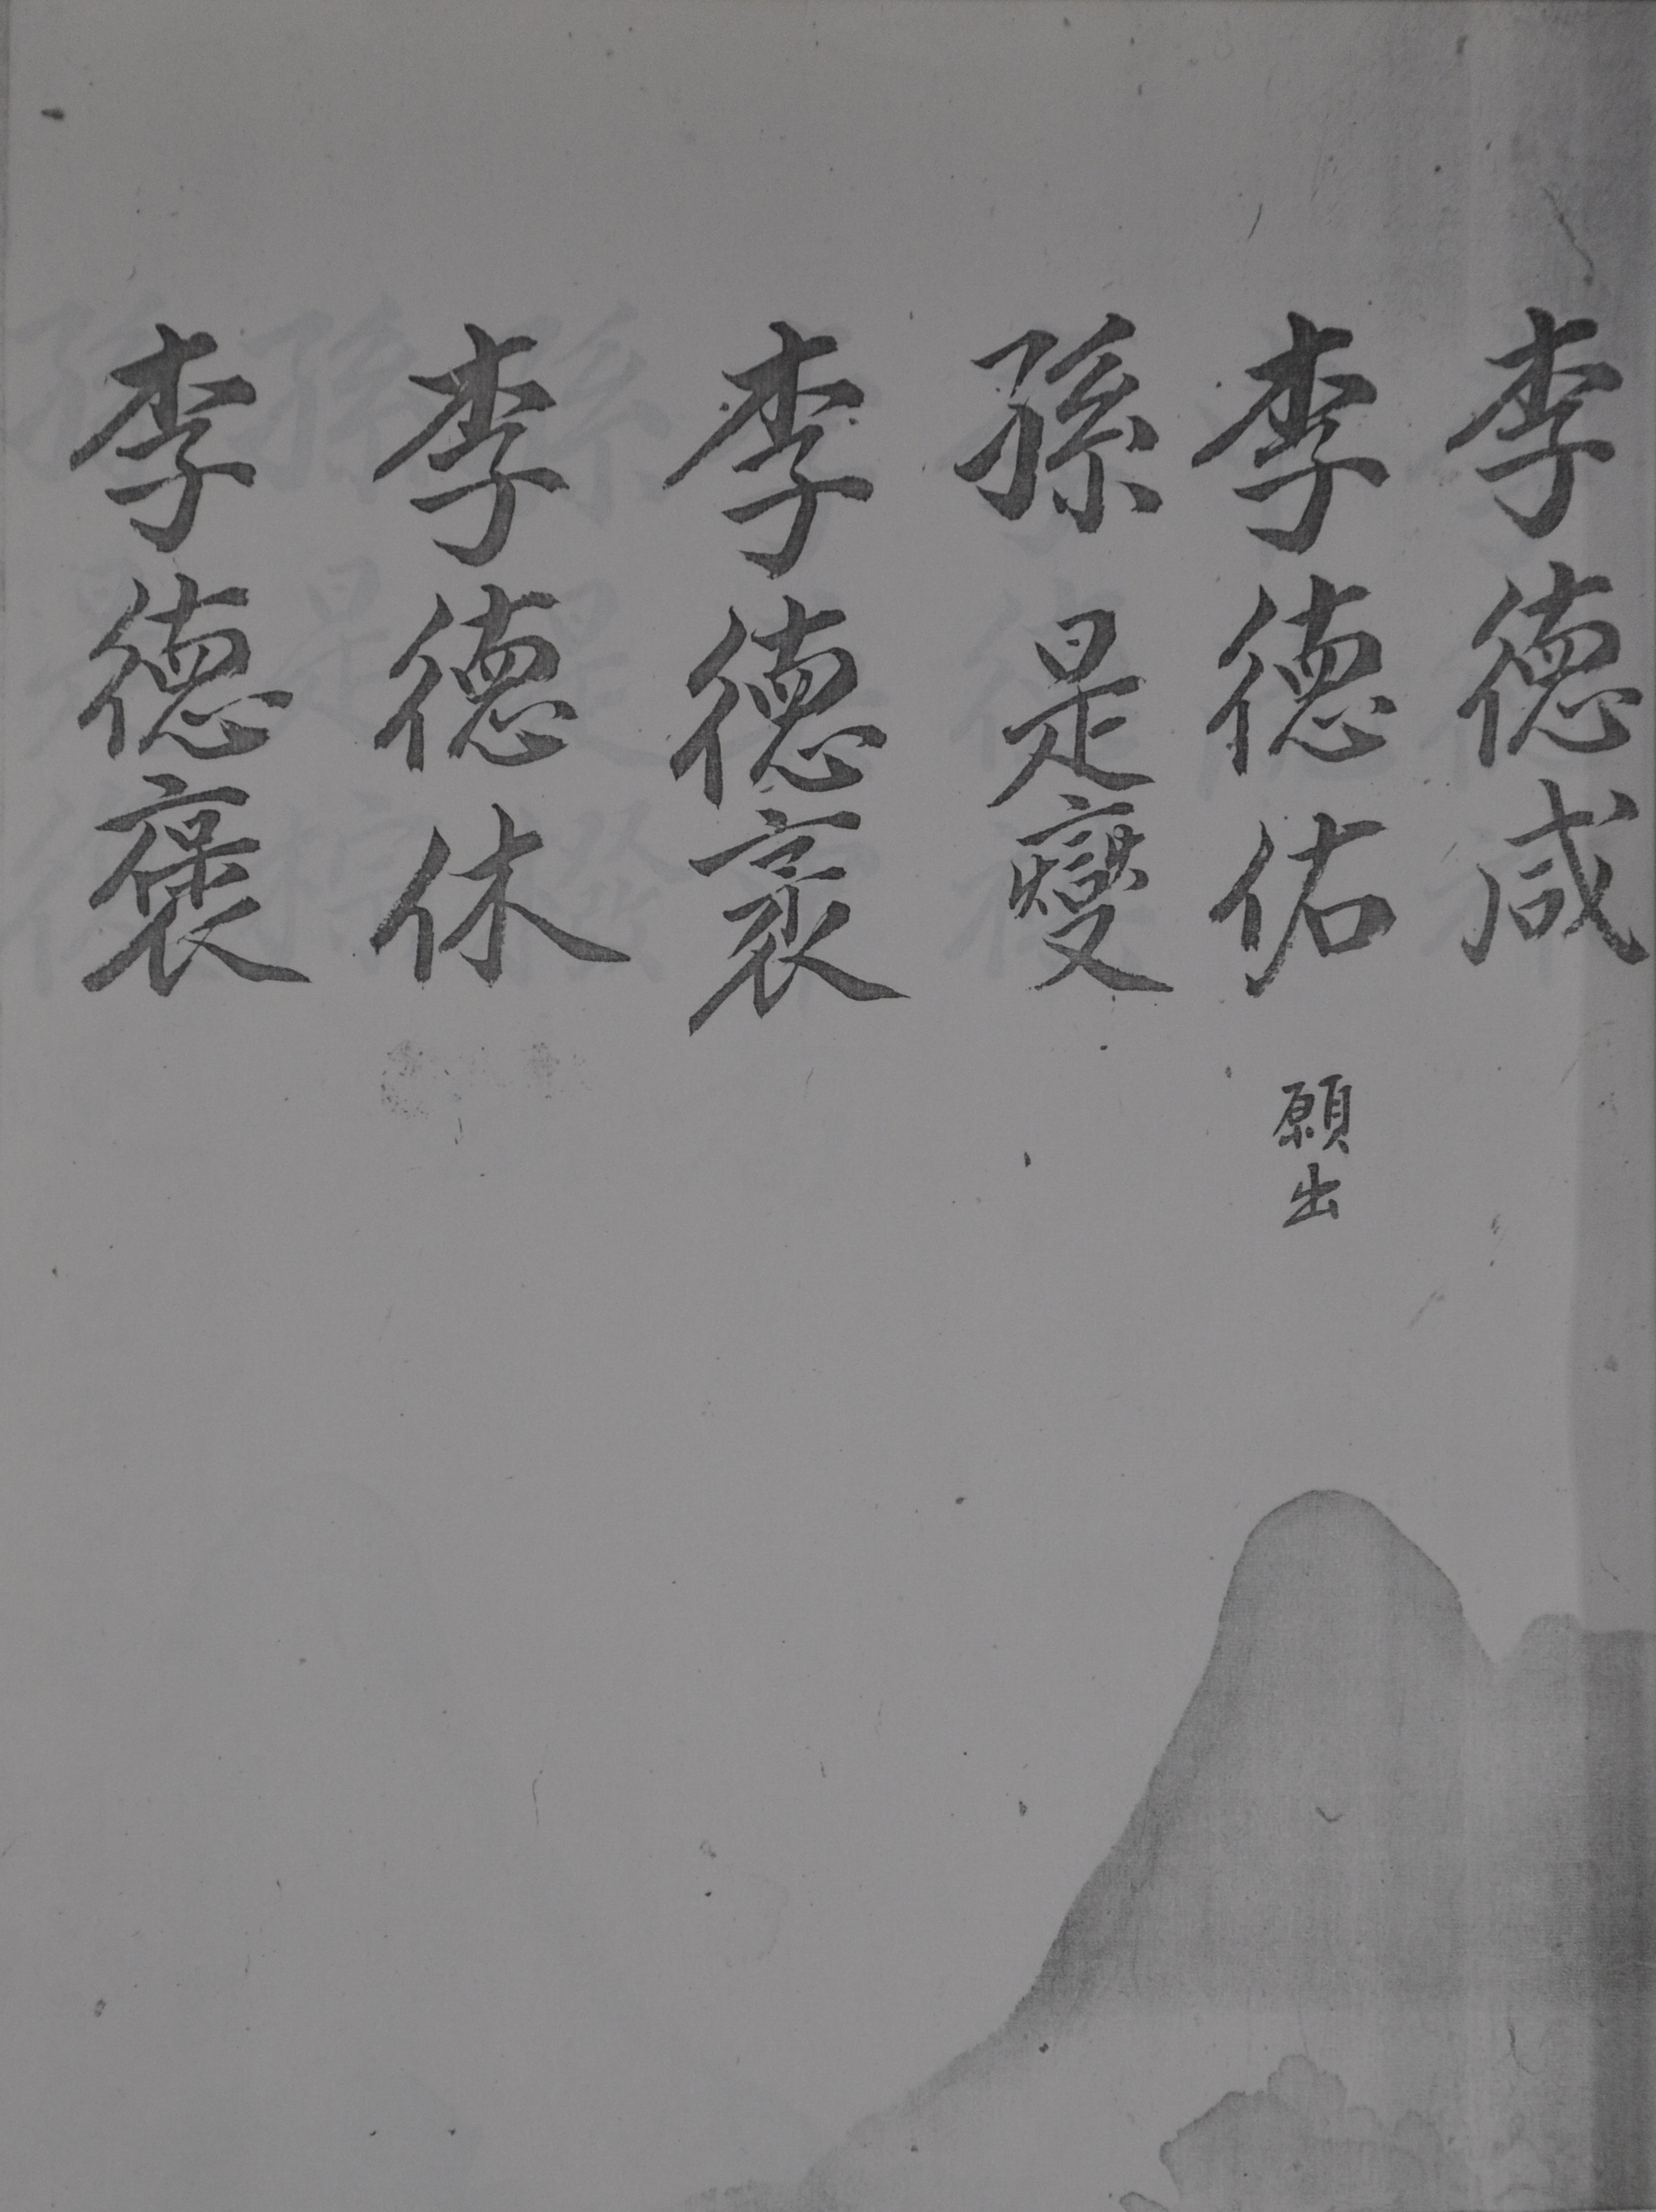 李德咸
李德佑 願出
孫是變
李德裒
李德休
李德褒